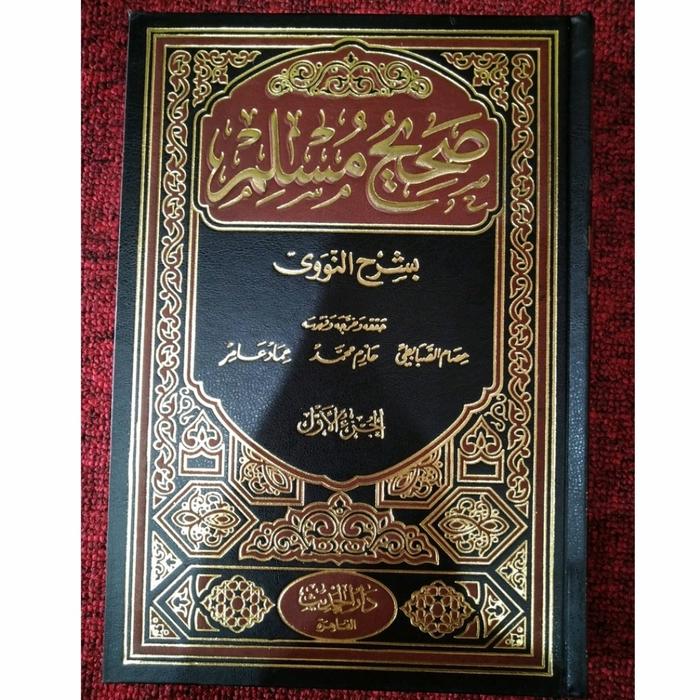 صَحِيحُ مُسْلِم
بشرح النووى
حققه وخرجه وفهرسه
عصام الصبابطى حازم محمد عماد عامر
الجزء الأول
دار الحديث
القاهرة